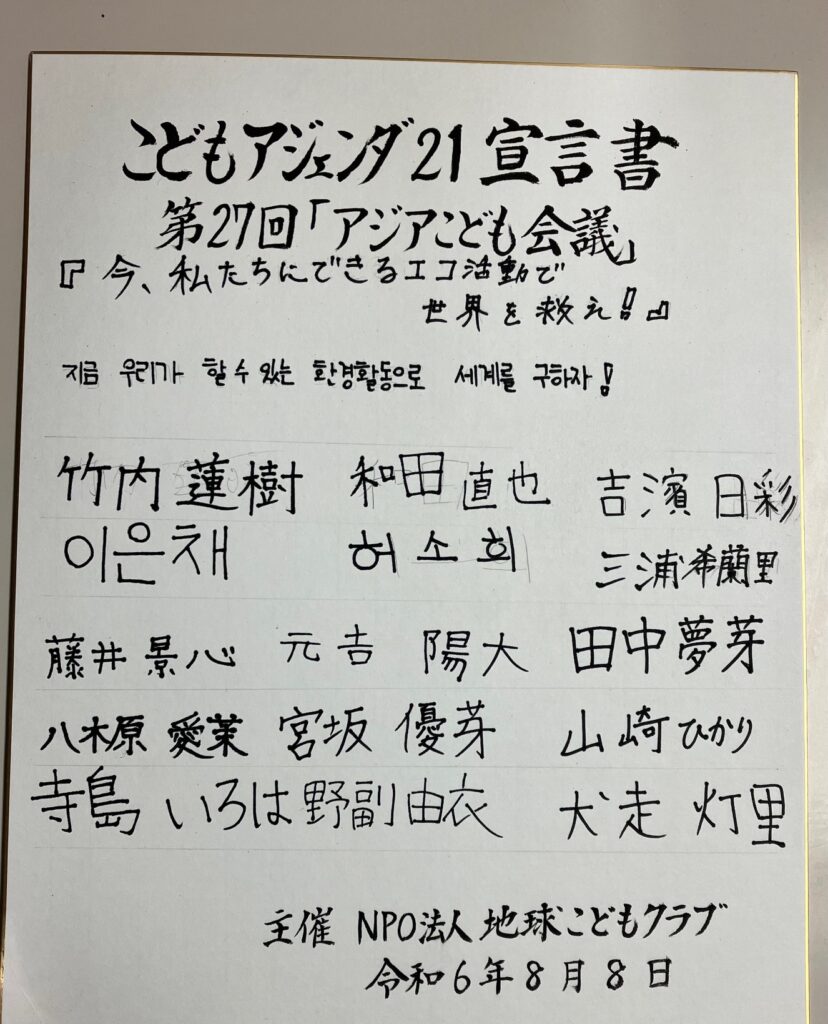 こどもアジェンダ21宣言書
第27回「アジアこども会議」
『今、私たちにできるエコ活動で
世界を救え!』
지금 우리가 할 수 있는 환경활동으로 세계를 구하자!
竹内 蓮樹 和田 直也 吉濱 日彩
이은채 허소희 三浦希蘭里
藤井 景心 元吉 陽大 田中夢芽
八木原 愛茉 宮坂 優芽 山崎ひかり
寺島 いろは 野副由衣 犬走 灯里
主催 NPO法人 地球こどもクラブ
令和6年8月8日